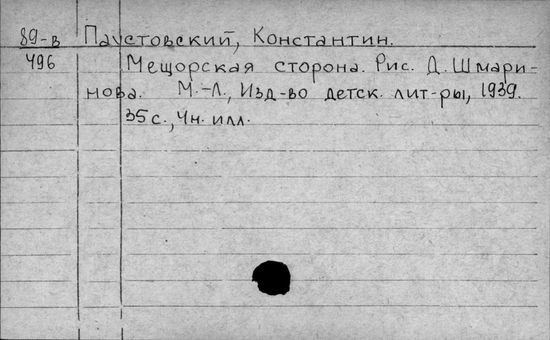 89-в Паустовский, Константин.
496 Мещорская сторона. Рис. Д. Шмари-
нова. М.-Л., Изд-во детск. лит-ры, 1939.
35 с., Чн. илл.